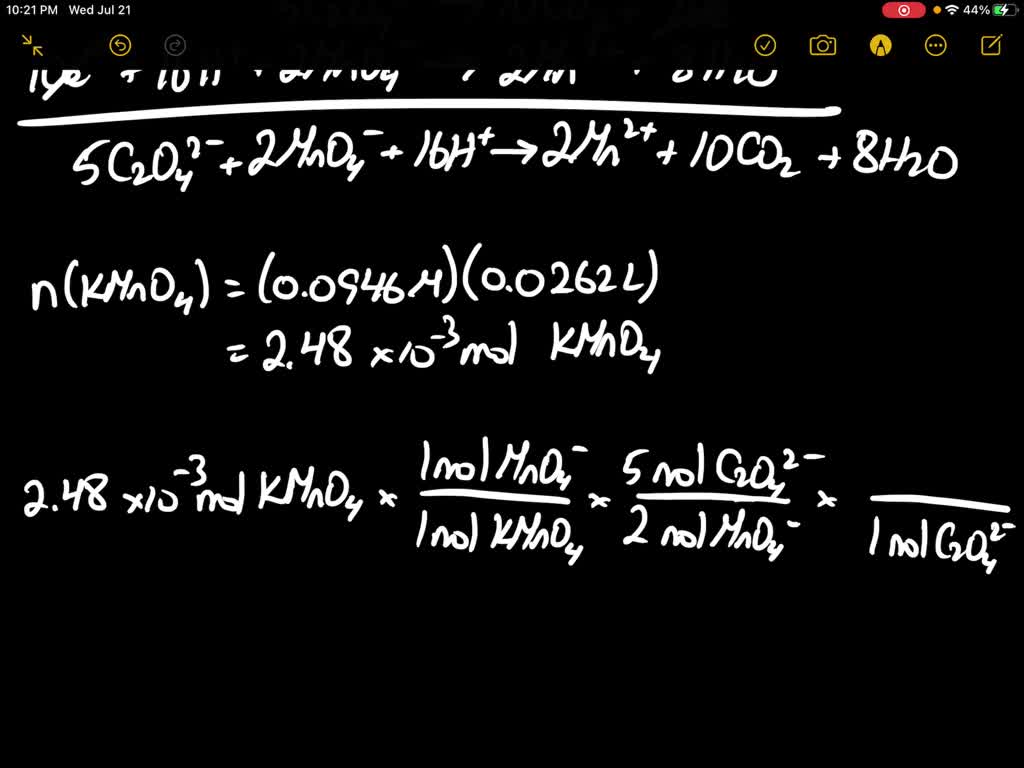 10:21 PM Wed Jul 21
44%
5C₂O₄²⁻ + 2MnO₄⁻ + 16H⁺ → 2Mn²⁺ + 10CO₂ + 8H₂O
n(KMnO₄) = (0.0946M)(0.0262L)
= 2.48 ×10⁻³ mol KMnO₄
2.48 ×10⁻³ mol KMnO₄ × 1 mol MnO₄⁻ / 1 mol KMnO₄ × 5 mol C₂O₄²⁻ / 2 mol MnO₄⁻ × / 1 mol C₂O₄²⁻